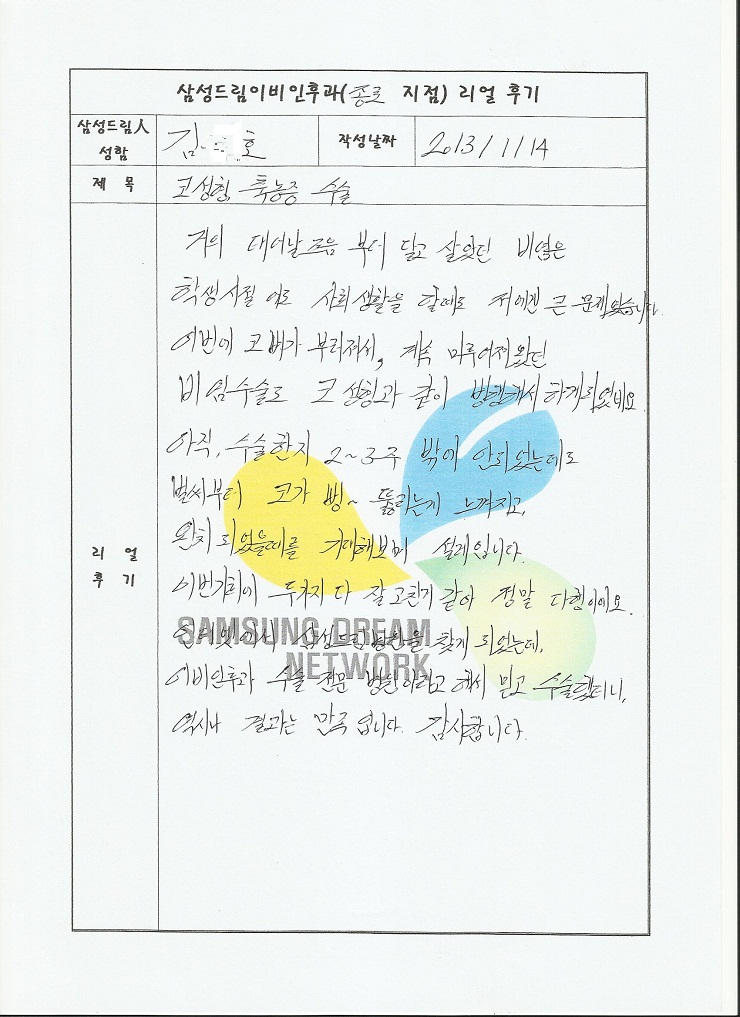 삼성드림이비인후과(종로 지점) 리얼 후기
삼성드림人
성함
김 호
작성날짜
2013/1/14
제 목
코성형, 축농증 수술
거의 태어날 즈음 부터 달고 살았던 비염은
학생시절 에도 사회생활을 할때도 저에겐 큰 문제였습니다.
이번에 코뼈가 부러져서, 계속 미루어져왔던
비염수술도 코 성형과 같이 병행해서 하게되었네요
아직, 수술한지 2~3주 밖에 안되었는데도
벌써부터 코가 뻥~ 뚫리는게 느껴지고,
완치 되었을때를 기대해보며 설레입니다.
이번기회에 두가지 다 잘 고친거 같아 정말 다행이에요.
인터넷에서 삼성드림병원을 찾게 되었는데,
이비인후과 수술 전문 병원이라고 해서 믿고 수술했더니,
역시나 결과는 만족 입니다. 감사합니다.
리 얼
후 기
SAMSUNG DREAM
NETWORK